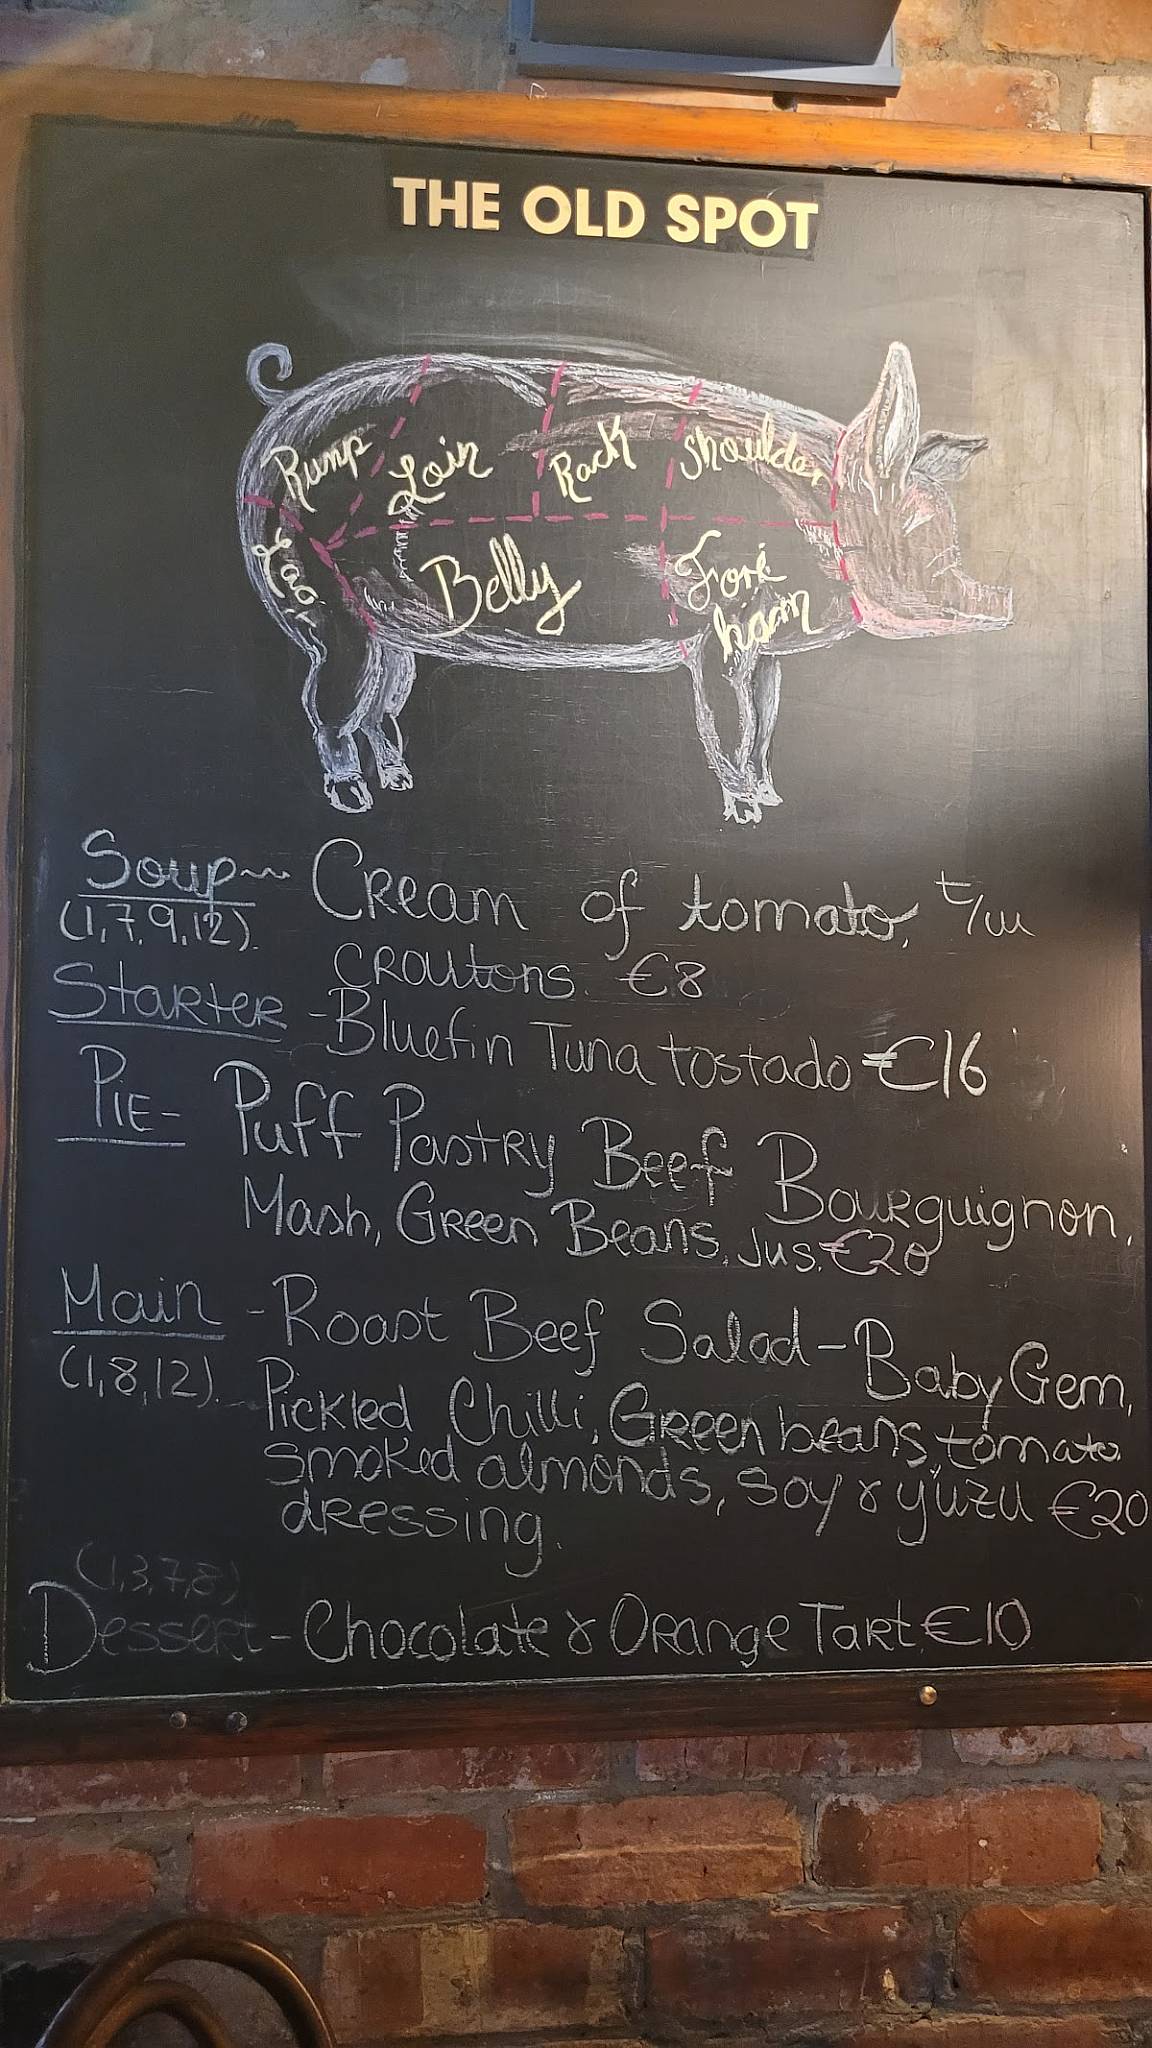 THE OLD SPOT
Rump Loin Rack Shoulder
Leg Belly Fore
ham
Soup~ CReam of tomato,
(1,7,9,12). CROUtons. €8
StaRteR - Bluefin Tuna tostado €16
PIE - Puff PastRy Beef BouRguignon,
Mash, GReen Beans, Jus. €20
Main - Roast Beef Salad - Baby Gem,
(1,8,12). Pickled Chilli, GReen beans, tomato
smoked almonds, soy & yuzu €20
dRessing.
(1,3,7,8)
DesseRt - Chocolate & ORange TaRt €10